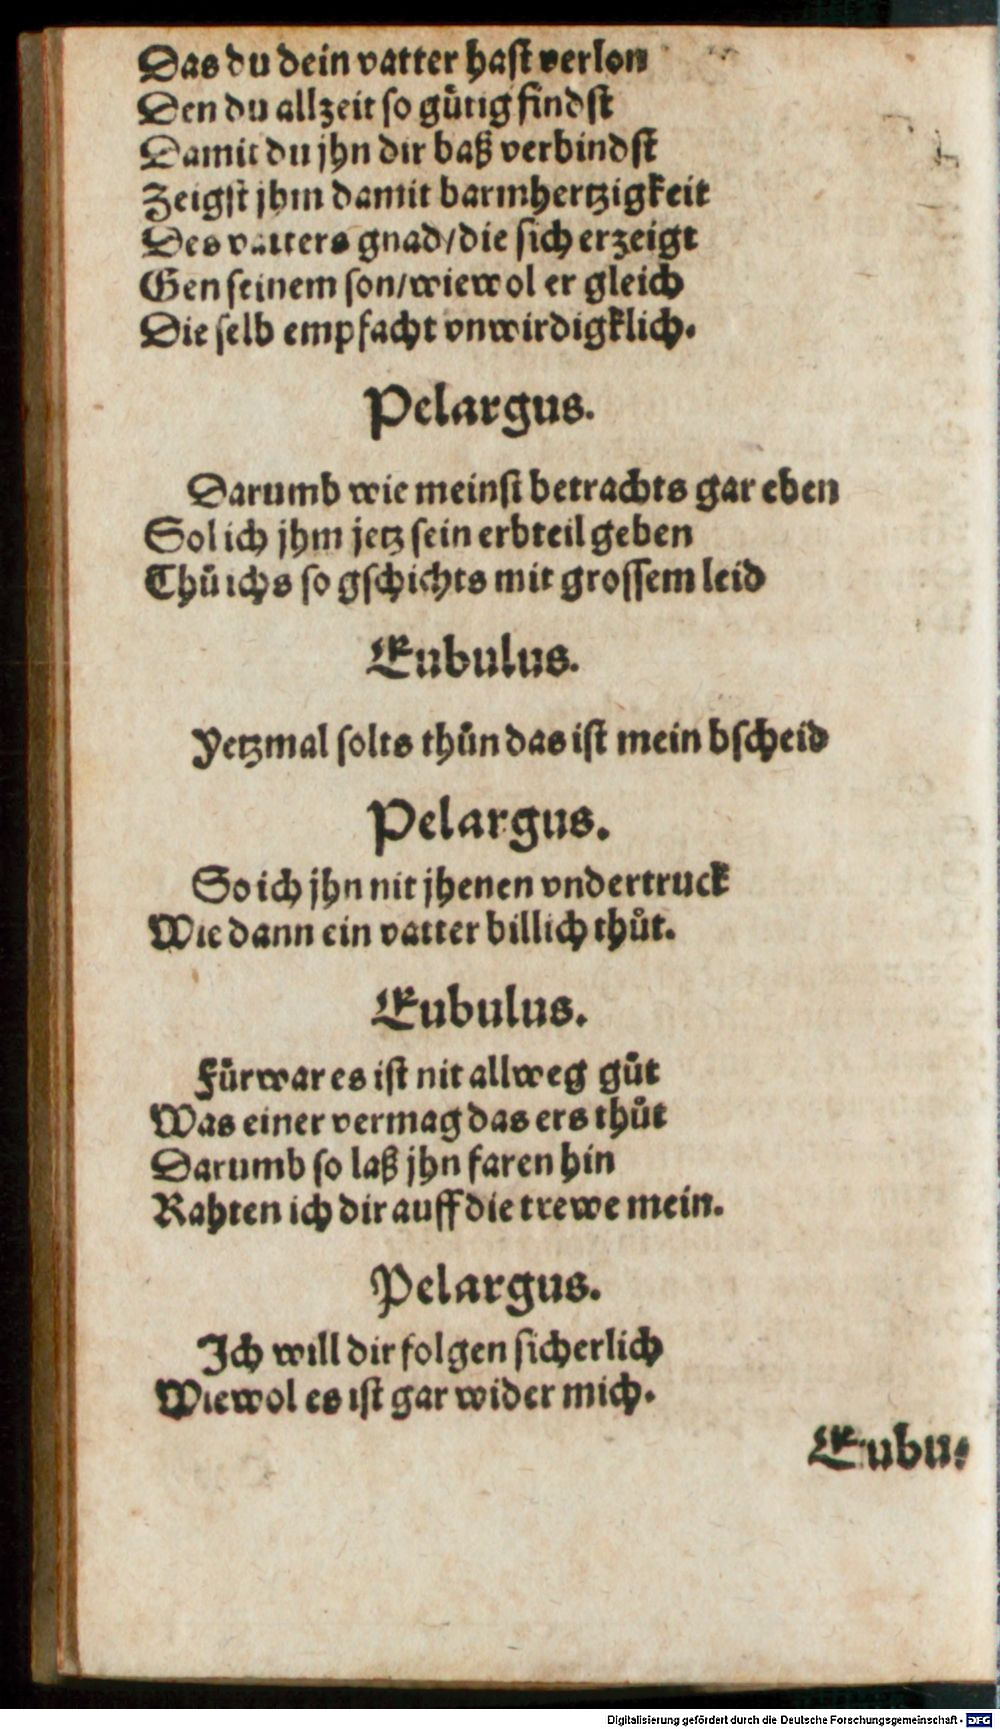 Das du dein vatter hast verlon
Den du allzeit so gütig findst
Damit du jhn dir baß verbindst
Zeigst jhm damit barmhertzigkeit
Des vatters gnad/die sich erzeigt
Gen seinem son/wiewol er gleich
Die selb empfacht vnwirdigklich.
Pelargus.
Darumb wie meinst betrachts gar eben
Sol ich jhm jetz sein erbteil geben
Thů ichs so gschichts mit grossem leid
Eubulus.
Yetzmal solts thůn das ist mein bscheid
Pelargus.
So ich jhn nit jhenen vndertruck
Wie dann ein vatter billich thůt.
Eubulus.
Fürwar es ist nit allweg gůt
Was einer vermag das ers thůt
Darumb so laß jhn faren hin
Rahten ich dir auff die trewe mein.
Pelargus.
Ich will dir folgen sicherlich
Wiewol es ist gar wider mich.
Eubu⸗
Digitalisierung gefördert durch die Deutsche Forschungsgemeinschaft - DFG